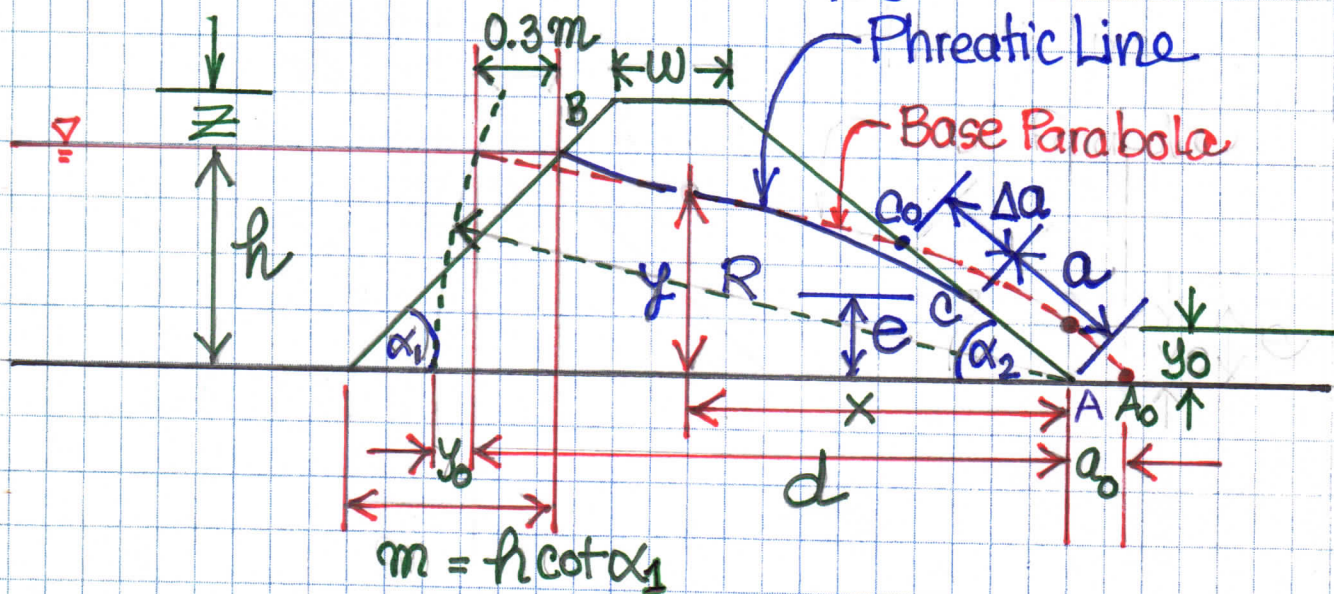 0.3m
w
Phreatic Line
B
Z
Base Parabola
h
C₀
Δa
a
y
R
C
e
α₁
α₂
y₀
x
A
A₀
y₀
d
a₀
m = h cot α₁